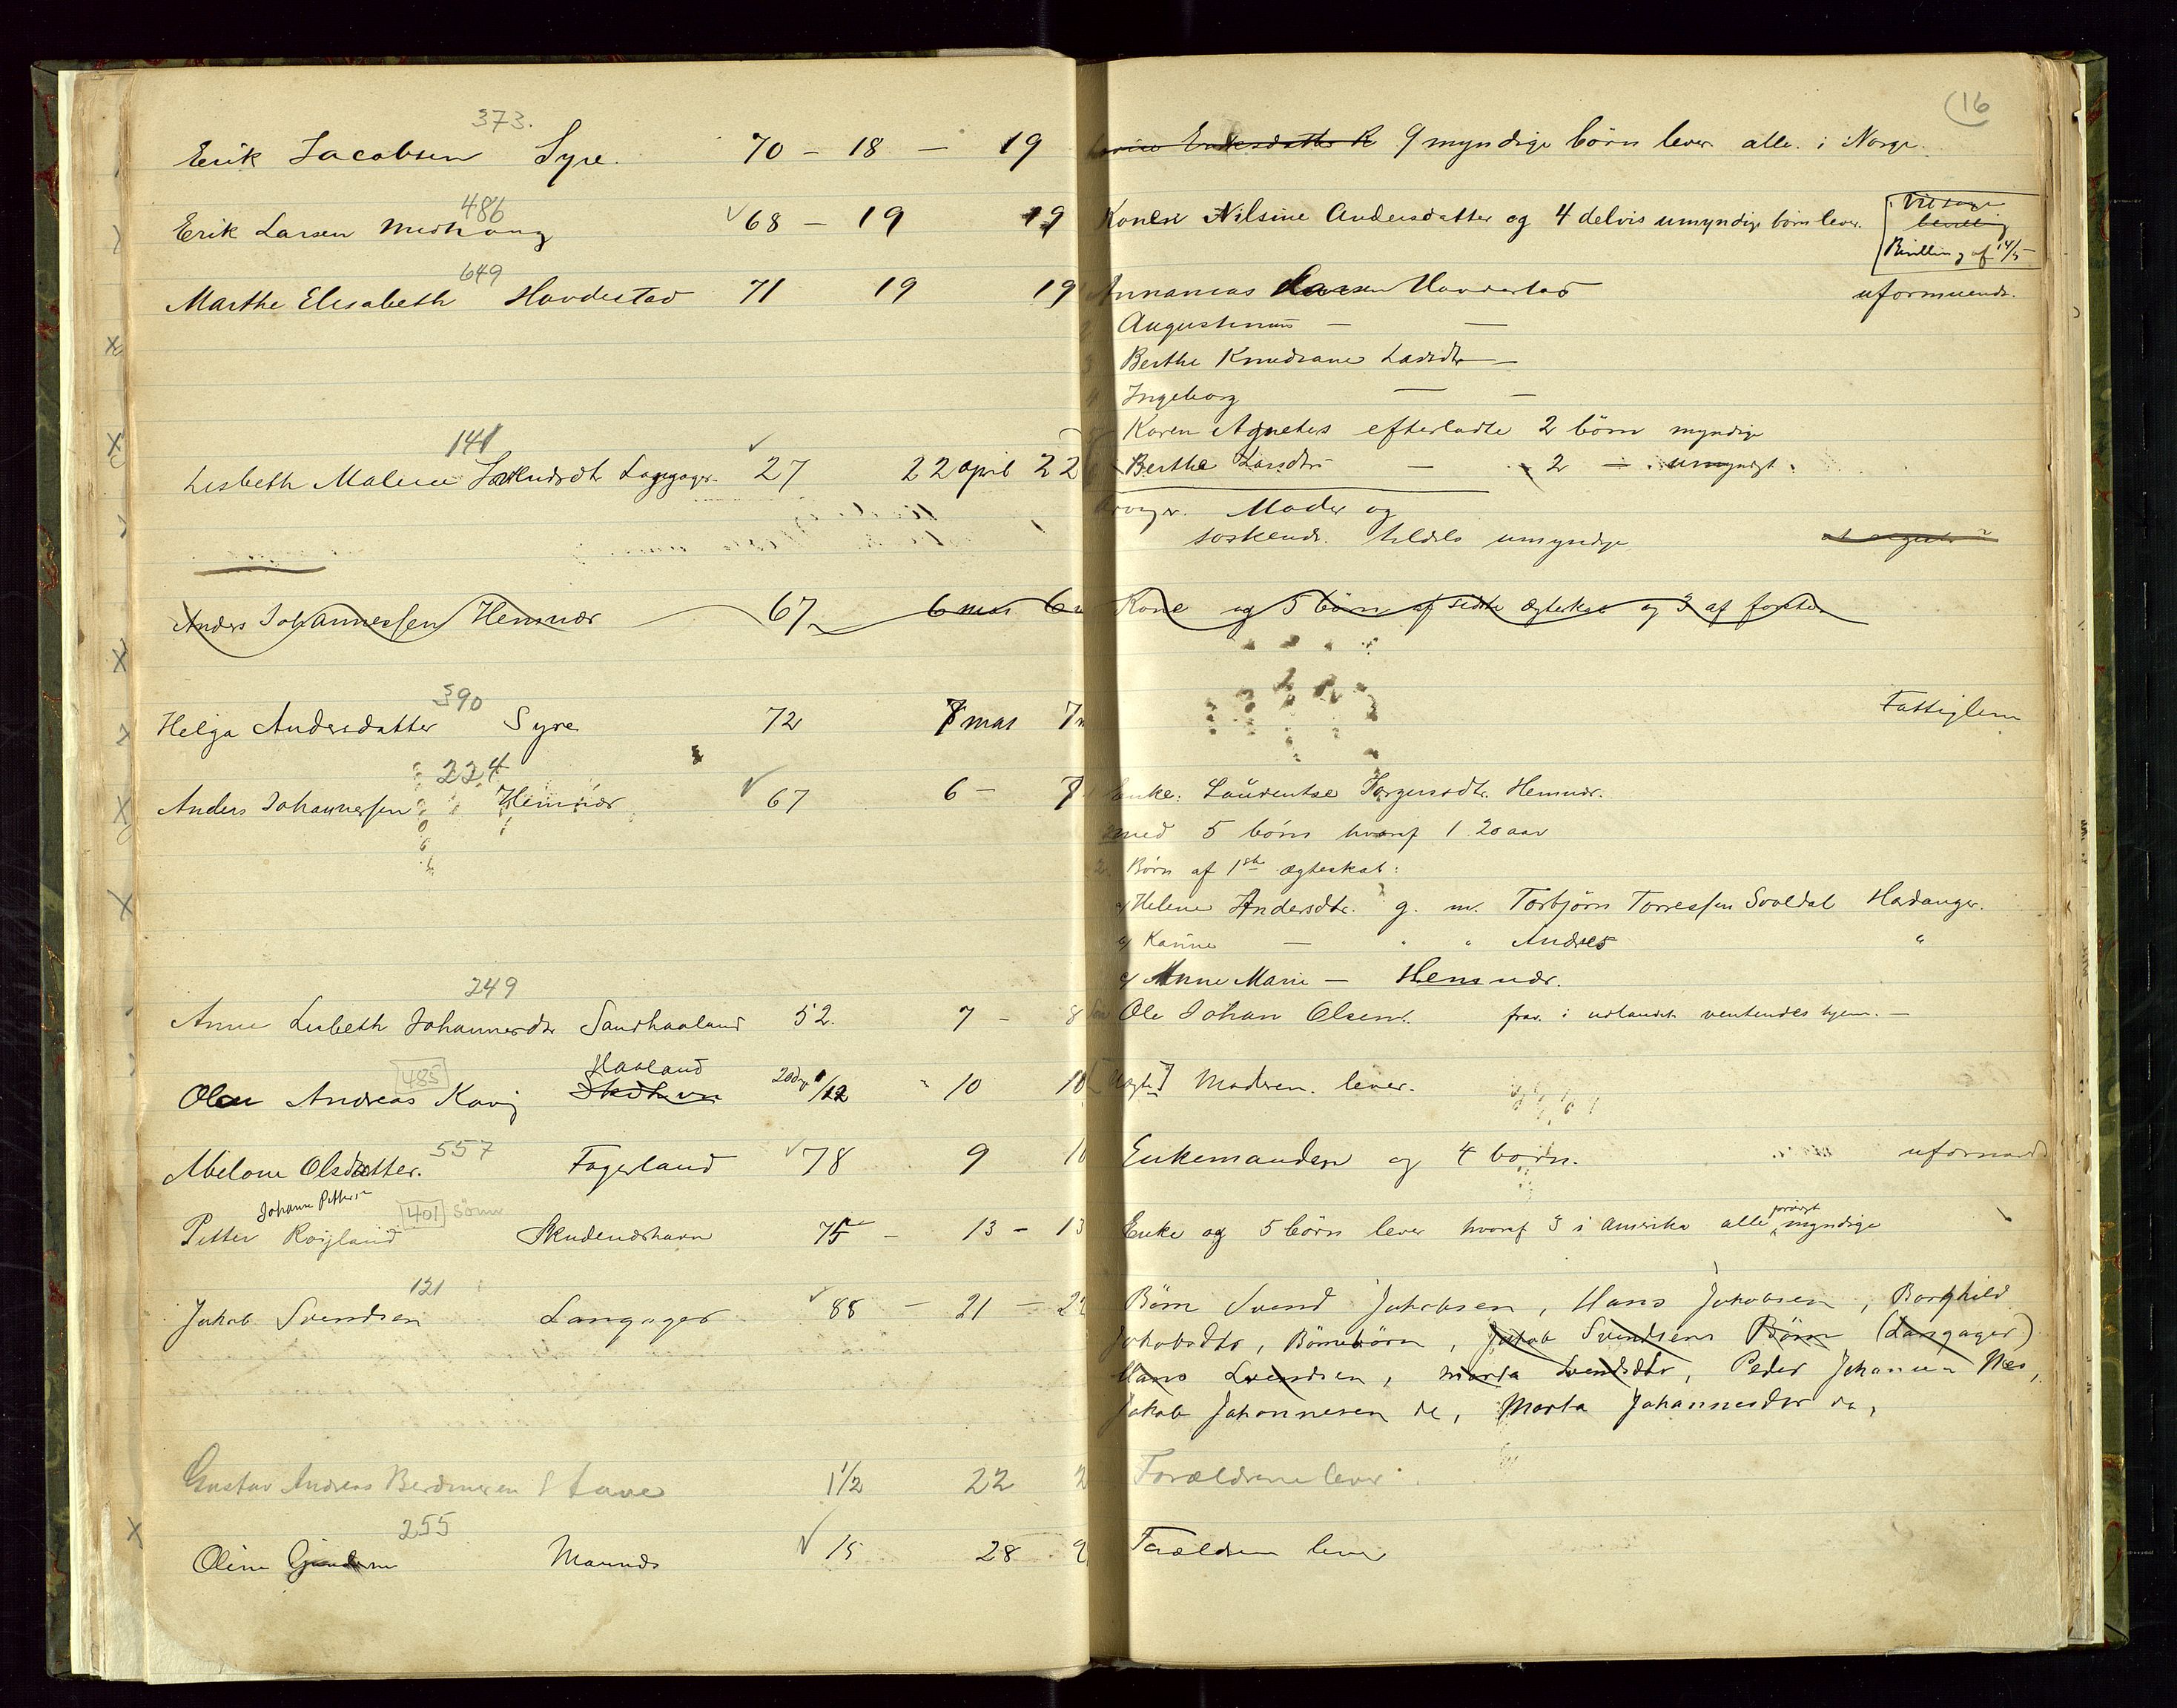 373.
Erik Jacobsen Syre. 70 - 18 - 19
9 myndige börn lever alle i Norge.
16
486
Erik Larsen Midhaug 68 - 19 19
Konen Nilsine Andersdatter og 4 delvis umyndige börn lever.
Bevilling af 14/5
649
Marthe Elisabeth Hovdestad 71 19 19
Annanias Larsen Hovdestad uformuende.
2 Augustinus — —
3 Berthe Knudsane Larsdtr —
4 Ingeborg — —
Karen Agnethes efterladte 2 börn myndige
141
Lisbeth Malene Langager 27 22 april 22
Berthe Larsdtrs — 2 — umyndige
Moder og
söskende tildels umyndige
Anders Johannessen Hemnær 67 6 mai 6
Kone og 5 börn af sidste ægteskab og 3 af förste
390
Helga Andersdatter Syre 72 7 mai 7
Fattiglem
224
Anders Johannessen Hemnær 67 6 - 7
Enke: Laurentse Torgersdtr. Hemnær.
med 5 börn hvoraf 1 20 aar
2. Börn af 1ste ægteskab:
a/ Helene Andersdtr. g. m. Torbjörn Torressen Hadanger.
Karine — " " Andres "
c/ Anne Marie — Hemnær.
249
Anne Lisbeth Johannesdtr Sandhaaland 52. 7 - 8
Ole Johan Olsen. frav. i udlandet ventendes hjem. —
485
Haaland
Andreas Skdhvn 10 10
Moderen lever.
557
Abelone Olsdatter. Fagerland 78 9 10
Enkemanden og 4 börn.
Johann Pettersen
401
Petter Röijland Skudeneshavn 75 - 13 - 13
Enke og 5 börn lever hvoraf 3 i Amerika alle myndige
121
Jakob Svendsen Langager 88 - 21 - 22
Börn Svend Jakobsen, Hans Jakobsen, Borghild
Jakobsdtr, Börnebörn, Jakob Svendsens Börn (Langager)
Hans Svendsen, Marta Svendsdtr, Peder Johannesen Nes,
Jakob Johannesen do, Marta Johannesdtr do,
Gustav Andreas Stave 1 1/2 22 2
Forældrene lever.
255
Oline Maunds 15 28
Forældren lever